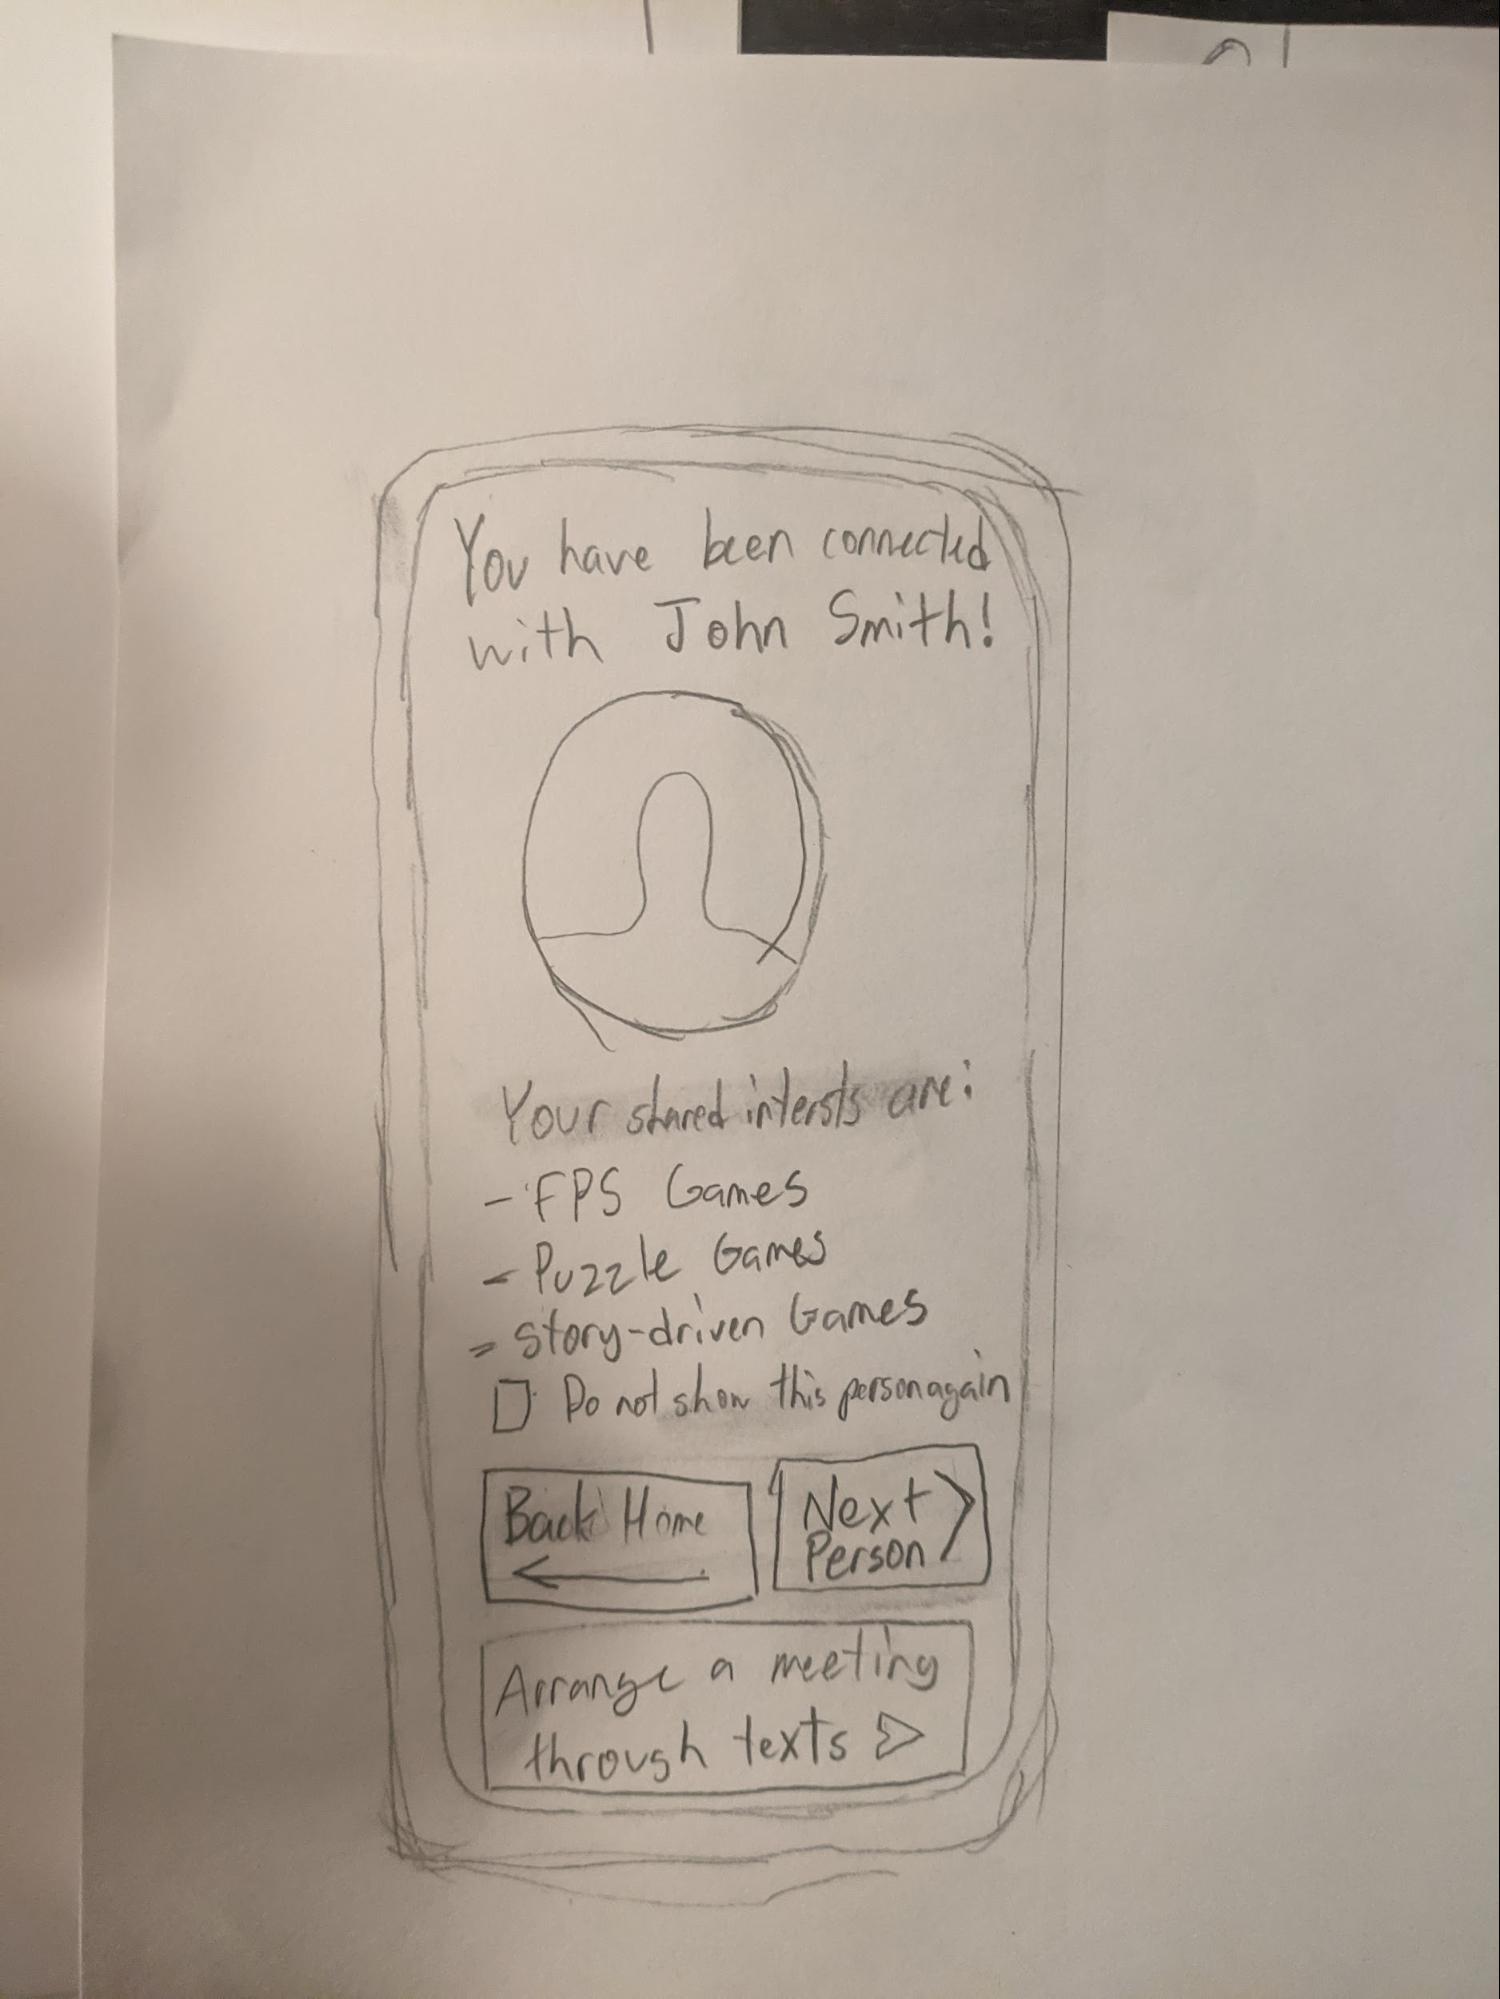 You have been connected
with John Smith!
Your shared intersts are:
- FPS Games
- Puzzle Games
- Story-driven Games
Do not show this person again
Back Home
Next
Person
Arrange a meeting
through texts